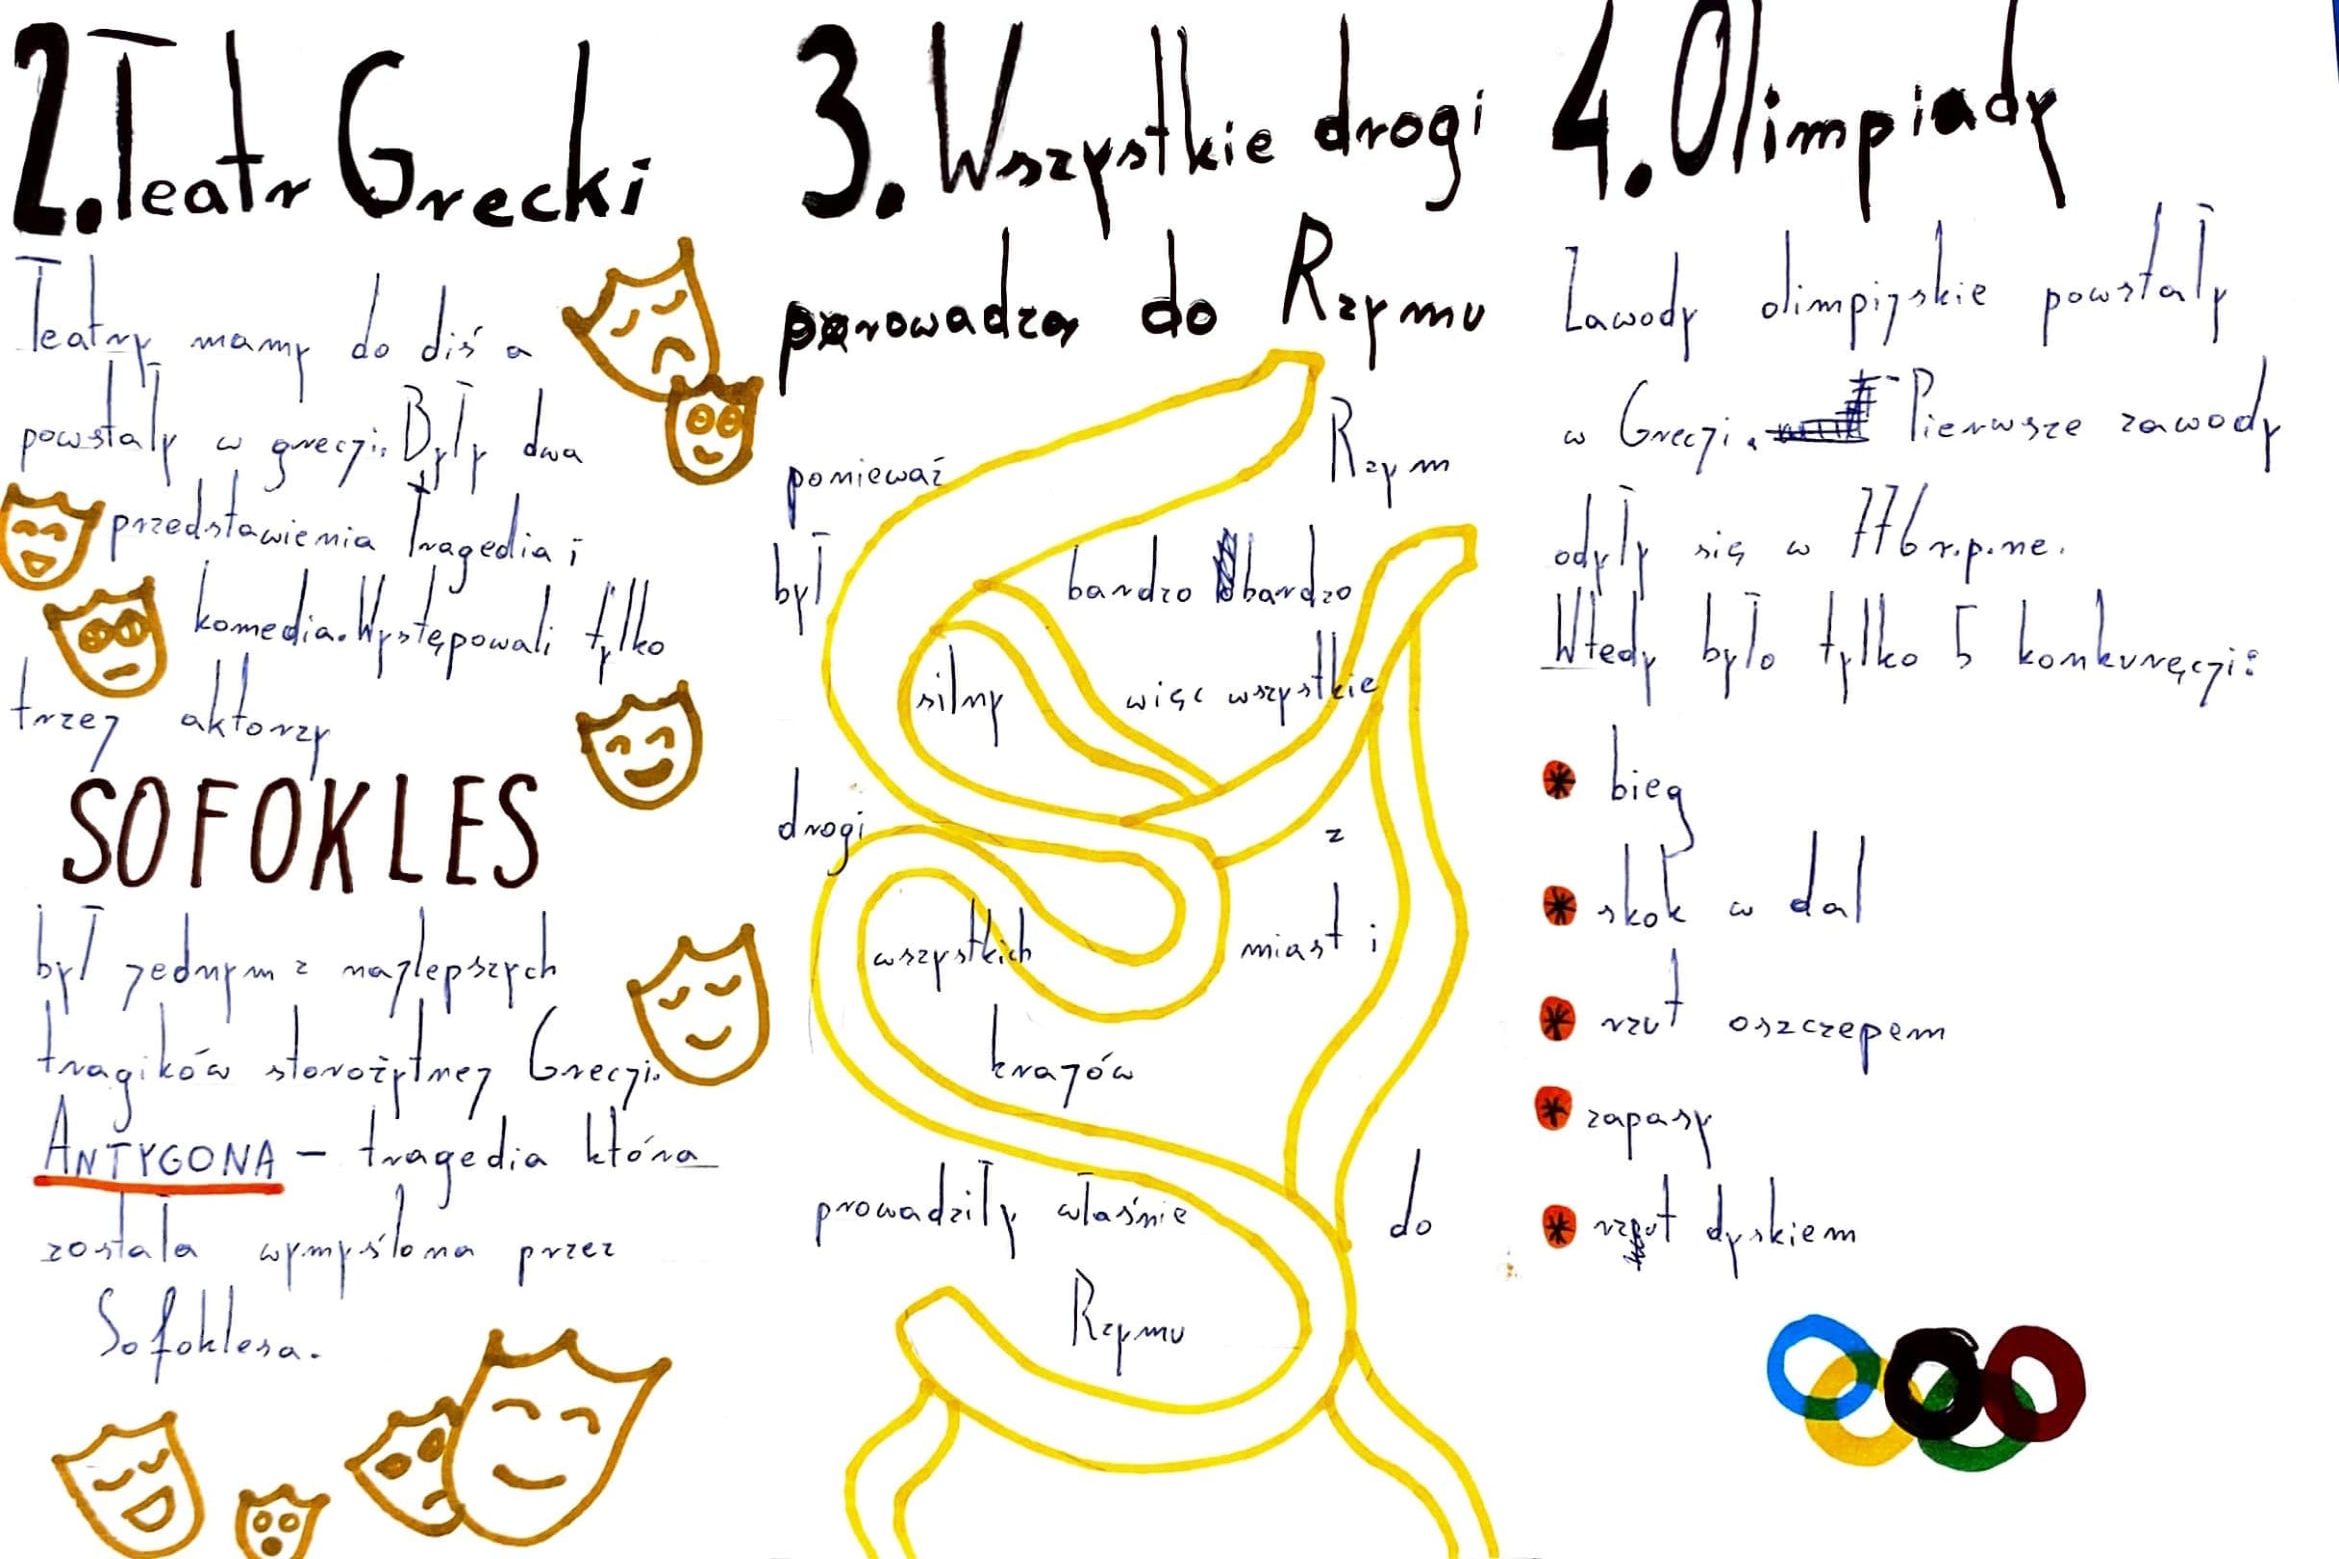 2. Teatr Grecki
Teatry mamy do diś a
powstały w grecji. Były dwa
przedstawienia tragedia i
komedia. Występowali tylko
trzej aktorzy
SOFOKLES
był jednym z najlepszych
tragików starożytnej Grecji.
ANTYGONA – tragedia która
została wymyślona przez
Sofoklesa.
3. Wszystkie drogi
prowadzą do Rzymu
ponieważ Rzym
był bardzo bardzo
silny więc wszystkie
drogi z
wszystkich miast i
krajów
prowadziły właśnie do
Rzymu
4. Olimpiady
Zawody olimpijskie powstały
w Grecji. Pierwsze zawody
odyły się w 776 r.p.ne.
Wtedy było tylko 5 konkuręcji:
bieg
skok w dal
rzut oszczepem
zapasy
rzut dyskiem